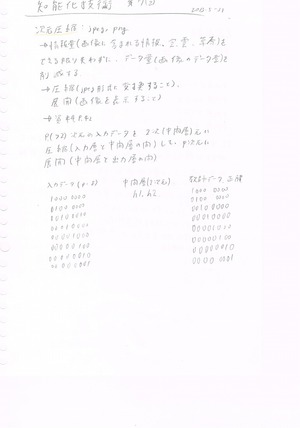 知能化技術 第7回
次元圧縮：jpeg, png
→情報量(画像に含まれる情報。)を
できる限り失わずに、データ量(画像のデータ量)を
削減する。
→圧縮(jpeg形式に変更すること)、
展開(画像を表示すること)
P(72)次元の入力データを2次(中間層)元に
圧縮(入力層と中間層の間)して、P次元に
展開(中間層と出力層の間)
入力データ 中間層(2次元) 教師データ 正解
1000 0000 h1, h2 1000 0000
0100 0000 0100 0000
00100000 00100000
00010000 00010000
00001000 00001000
00000100 00000100
00000010 00000010
00000001 0000 0001